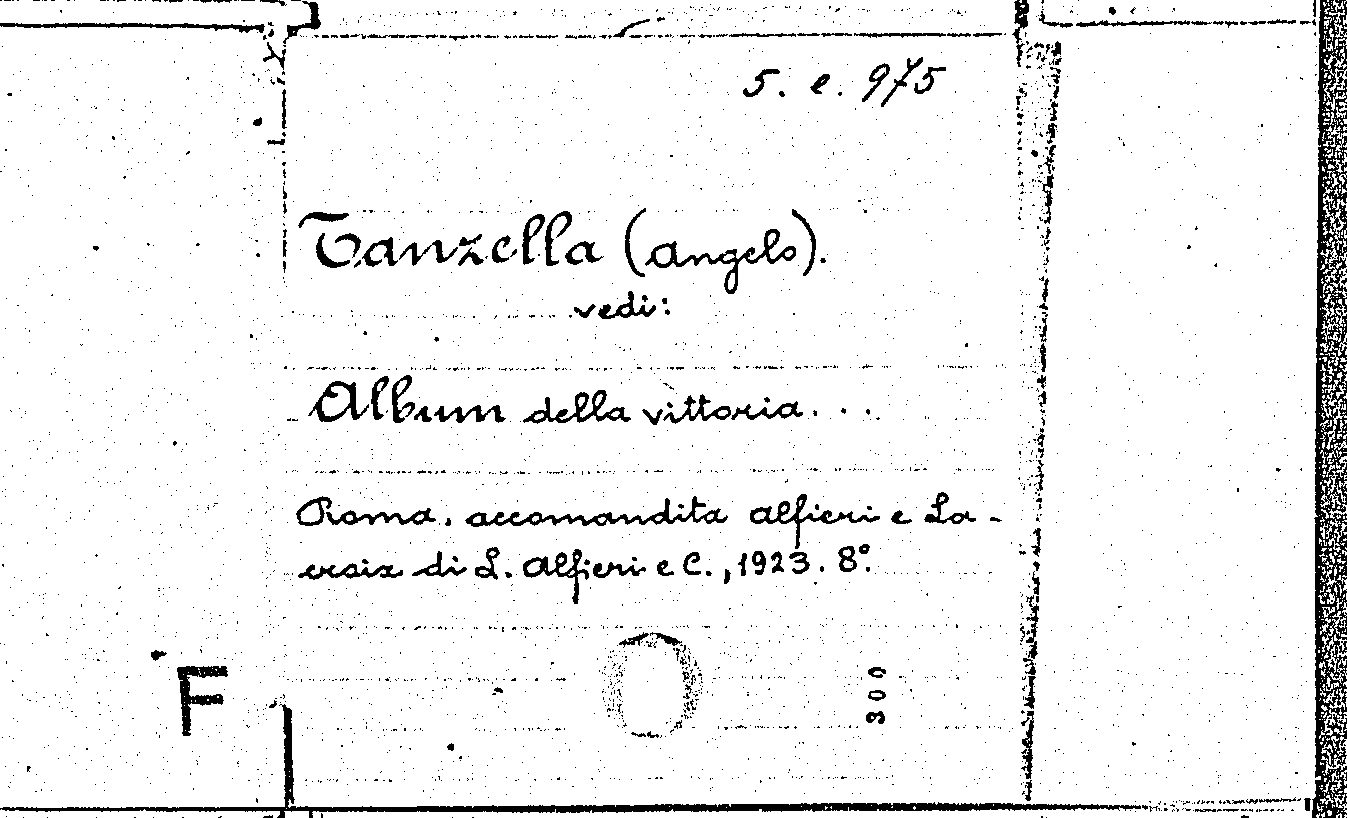 5. e. 975
Tanzella (Angelo).
vedi:
Album della vittoria...
Roma, accomandita Alfieri e La-
croix di L. Alfieri e C., 1923. 8°.
F
300